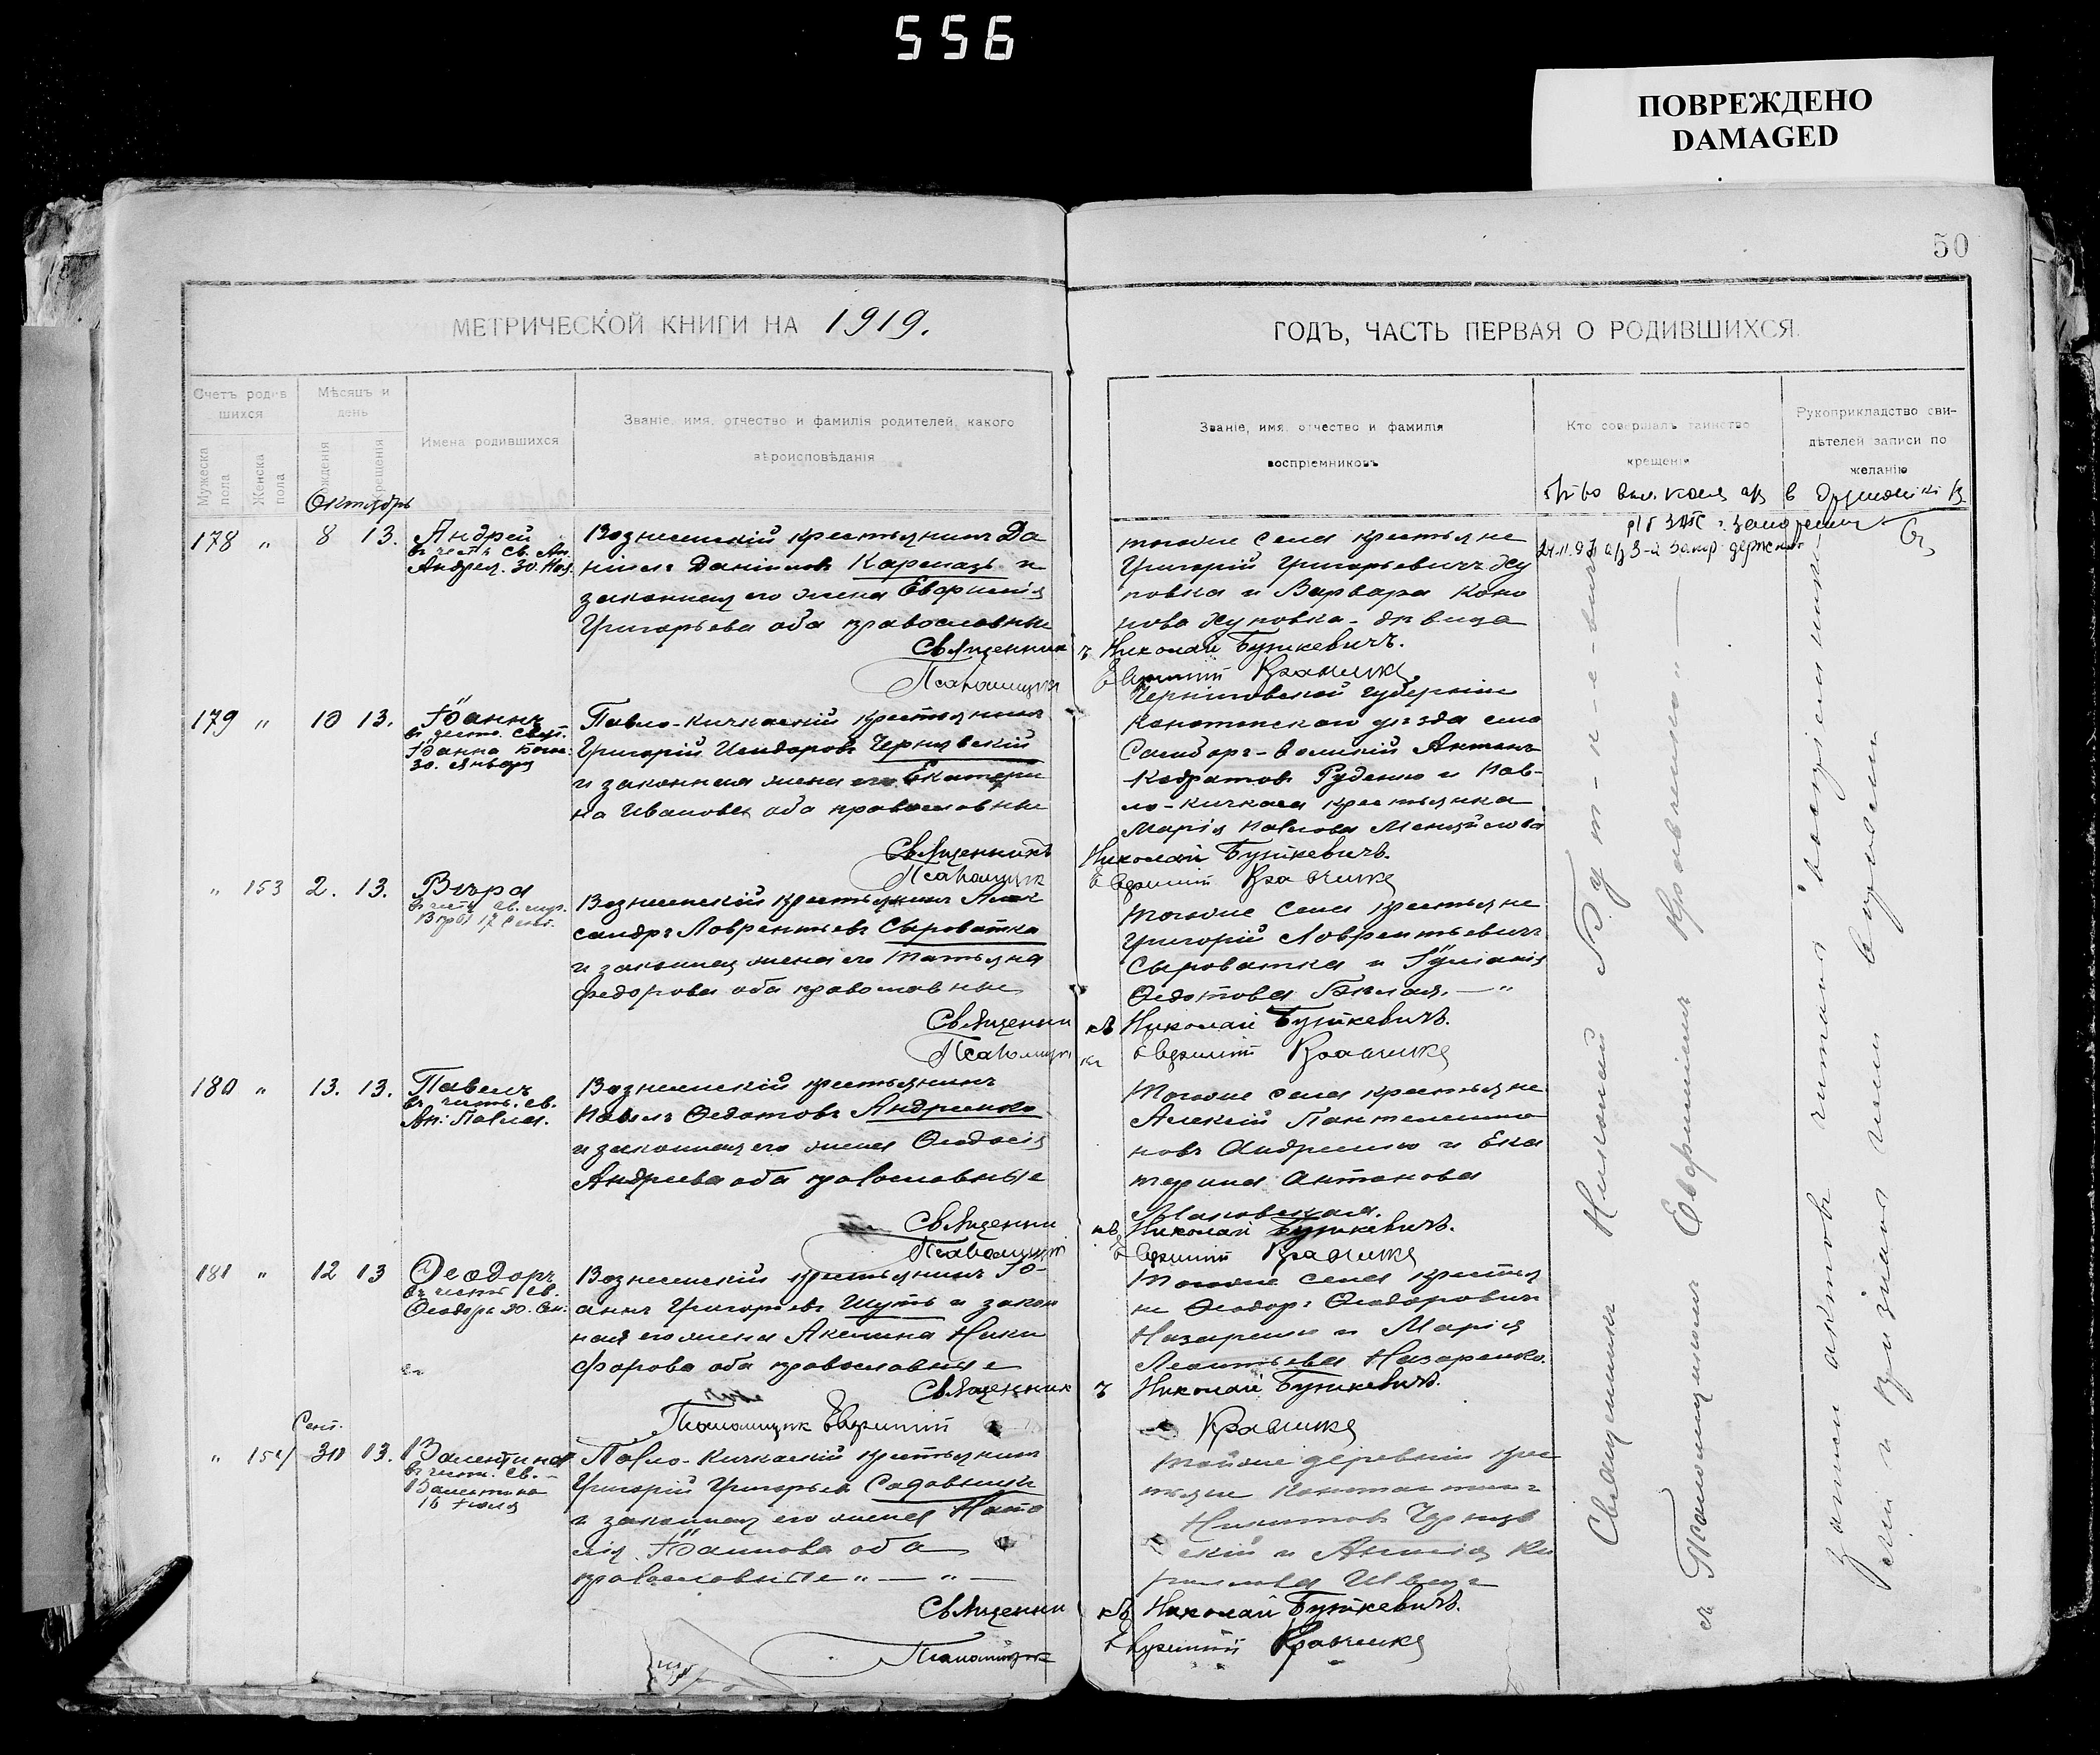 556
ПОВРЕЖДЕНО
DAMAGED
50
МЕТРИЧЕСКОЙ КНИГИ НА 1919.
ГОДЪ, ЧАСТЬ ПЕРВАЯ О РОДИВШИХСЯ.
Счетъ родив
шихся
Мѣсяцъ и
день
Мужеска
пола
Женска
пола
рожденія
крещенія
Имена родившихся
Званіе, имя, отчество и фамилія родителей, какого
вѣроисповѣданія
Званіе, имя, отчество и фамилія
воспріемниковъ
Кто совершалъ таинство
крещенія
Рукоприкладство сви-
дѣтелей записи по
желанію
Октябрь
178 " 8 13. Андрей
въ честь св. Ап.
Андрея. 30. Ноя.
Вознесенскій крестьянинъ Да
ніилъ Даніиловъ Карназъ и
законная его жена Евфимія
Григорьева оба православные
тогоже села крестьяне
Григорій Григорьевичъ
и Варвара Коно
нова
Священникъ Николай Буткевичъ.
Псаломщикъ Евфимій Кравченко
179 " 10 13. Іоаннъ
30. Января
Павло-Кичкаскій крестьянинъ
Григорій Исидоровъ Чернявскій
и законная жена его Екатери
на Иванова оба православные
Черниговской губерніи
Конотопскаго уѣзда села
Антонъ
Кодратовъ Руденко и Пав-
ло-Кичкаса крестьянка
Марія Павлова
Священникъ Николай Буткевичъ.
Псаломщикъ Евфимій Кравченко
" 153 2. 13. Вѣра
въ честь св. муч.
Вѣры 17 Сент.
Вознесенскій крестьянинъ Алек
сандръ Лаврентьевъ Сыроватка
и законная жена его Татьяна
Федорова оба православные
Тогоже села крестьяне
Григорій Лаврентьевичъ
Сыроватка и Іуліанія
Федотова Бѣлая. — "
Священникъ Николай Буткевичъ.
Псаломщикъ Евфимій Кравченко
180 " 13. 13. Павелъ
въ честь св.
Ап: Павла.
Вознесенскій крестьянинъ
Павелъ Федотовъ Андрієнко
и законная его жена Феодосія
Андреева оба православные
Тогоже села крестьяне
Алексій Пантелеимо
новъ Андреенко и Ека
терина Антонова
Священникъ Николай Буткевичъ.
Псаломщикъ Евфимій Кравченко
181 " 12 13 Феодоръ
въ честь св.
Вознесенскій крестьянинъ Іо-
аннъ Григорьевъ Шуть и закон
ная его жена Акелина Ники
форова оба православные
Тогоже села крестья
не Феодоръ Феодоровичъ
Назаренко и Марія
Леонтьева Назаренко.
Священникъ Николай Буткевичъ.
Псаломщикъ Евфимій Кравченко
Сент.
" 154 30 13. Валентина
въ честь св.
Валентина
16 Іюля
Павло-Кичкаскій крестьянинъ
Григорій Григорьевъ Садовничъ
и законная его жена Ната
лія Іоаннова оба
православные " — " —
Тойже деревни крес
тьяне Константинъ
Никитовъ Черняв
скій и
Священникъ Николай Буткевичъ.
Псаломщикъ Евфимій Кравченко
Священникъ Николай Буткевичъ
съ Псаломщикомъ Евфиміемъ Кравченко